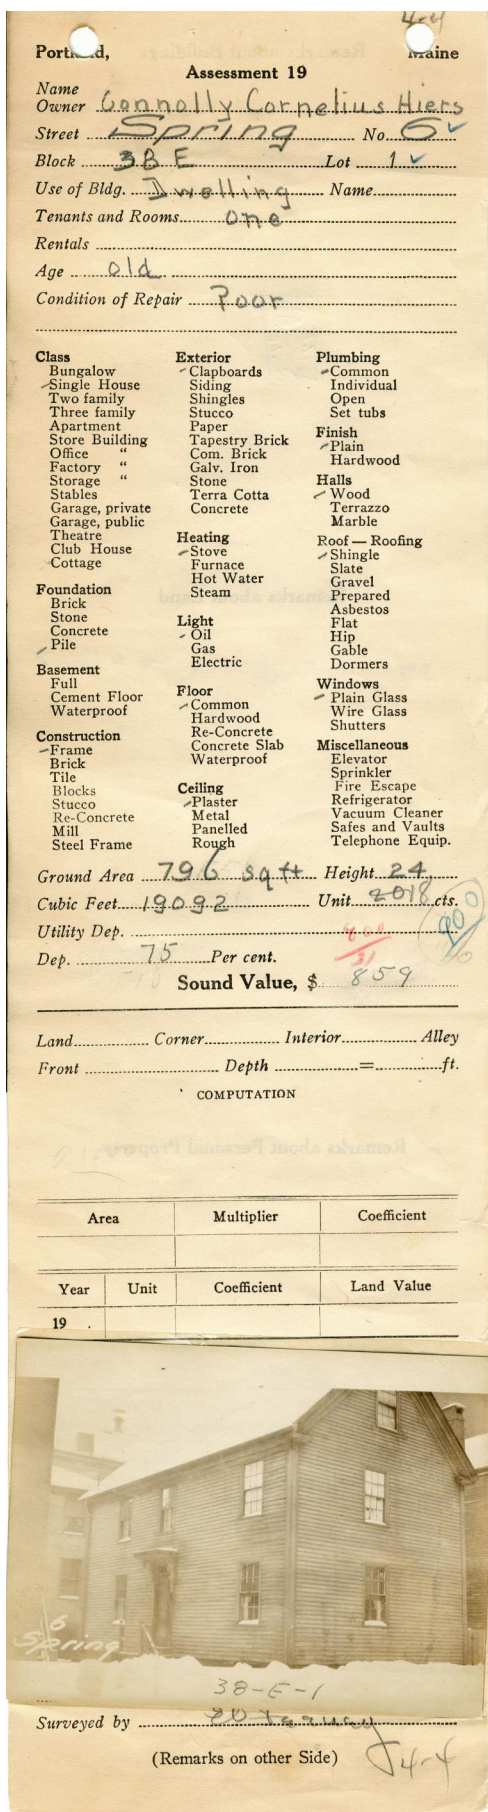 4-4
Portland, Maine
Assessment 19
Name
Owner Connolly Cornelius Hiers
Street Spring No. 6 ✓
Block 38 E Lot 1 ✓
Use of Bldg. Dwelling Name
Tenants and Rooms one
Rentals
Age old
Condition of Repair Poor
Class
Bungalow
Single House
Two family
Three family
Apartment
Store Building
Office "
Factory "
Storage "
Stables
Garage, private
Garage, public
Theatre
Club House
Cottage
Foundation
Brick
Stone
Concrete
Pile
Basement
Full
Cement Floor
Waterproof
Construction
Frame
Brick
Tile
Blocks
Stucco
Re-Concrete
Mill
Steel Frame
Exterior
Clapboards
Siding
Shingles
Stucco
Paper
Tapestry Brick
Com. Brick
Galv. Iron
Stone
Terra Cotta
Concrete
Heating
Stove
Furnace
Hot Water
Steam
Light
Oil
Gas
Electric
Floor
Common
Hardwood
Re-Concrete
Concrete Slab
Waterproof
Ceiling
Plaster
Metal
Panelled
Rough
Plumbing
Common
Individual
Open
Set tubs
Finish
Plain
Hardwood
Halls
Wood
Terrazzo
Marble
Roof — Roofing
Shingle
Slate
Gravel
Prepared
Asbestos
Flat
Hip
Gable
Dormers
Windows
Plain Glass
Wire Glass
Shutters
Miscellaneous
Elevator
Sprinkler
Fire Escape
Refrigerator
Vacuum Cleaner
Safes and Vaults
Telephone Equip.
Ground Area 796 sq ft Height 24
Cubic Feet 19092 Unit 18 cts.
Utility Dep.
Dep. 75 Per cent.
900
Sound Value, $ 859
Land Corner Interior Alley
Front Depth = ft.
COMPUTATION
Area Multiplier Coefficient
Year Unit Coefficient Land Value
19 .
6
Spring
38-E-1
Surveyed by
(Remarks on other Side)
4-4